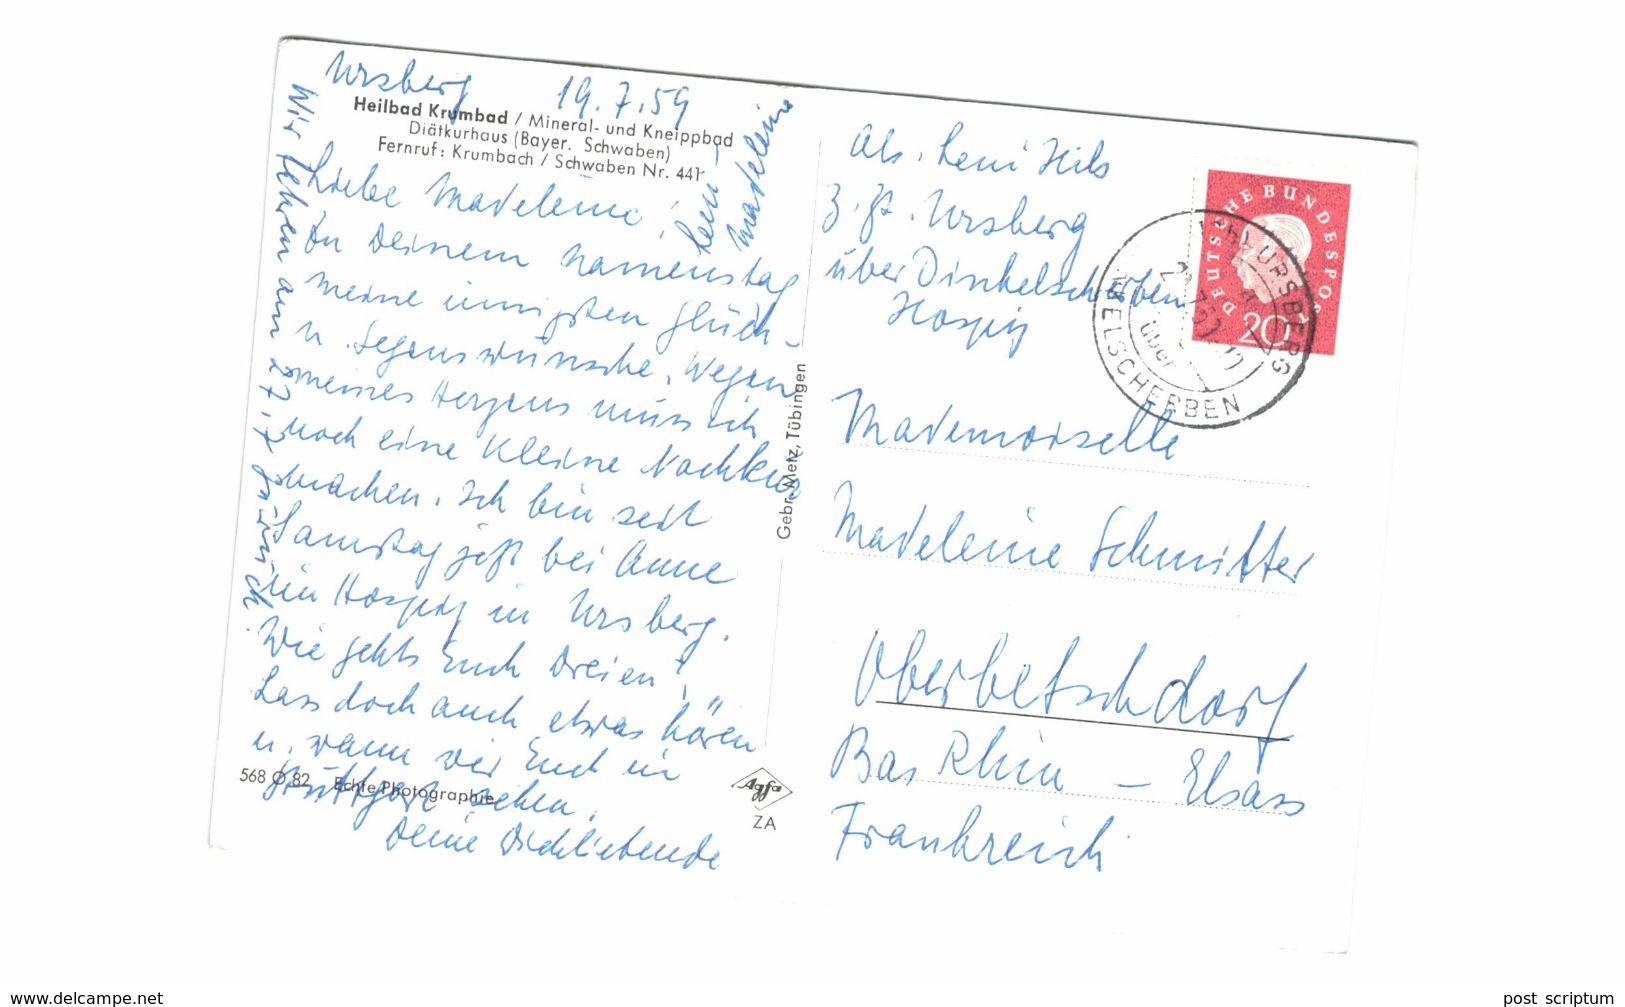 Ursberg 19.7.59
Heilbad Krumbad / Mineral- und Kneippbad
Diätkurhaus (Bayer. Schwaben)
Fernruf: Krumbach / Schwaben Nr. 441
Liebe Madeleine!
Zu Deinem Namenstag
meine innigsten Glück-
u. Segenswünsche. Wegen
meines Herzens muss ich
noch eine kleine Nachkur
machen. Ich bin seit
Samstag jetzt bei Anne
im Hospiz in Ursberg.
Wie gehts Euch Dreien?
Lass doch auch etwas hören
u. wann wir Euch in
Stuttgart sehen.
Deine Dichliebende
Leni
Madeleine
Wir kehren am 27.7. zurück.
568 O 82 Echte Photographie
Agfa
ZA
Gebr. Metz, Tübingen
Abs. Leni Hils
z. Zt. Ursberg
über Dinkelscherben
Hospiz
DEUTSCHE BUNDESPOST
20
URSBERG
über
DINKELSCHERBEN
Mademoiselle
Madeleine Schmitter
Oberbetschdorf
Bas Rhin – Elsass
Frankreich
www.delcampe.net
post_scriptum